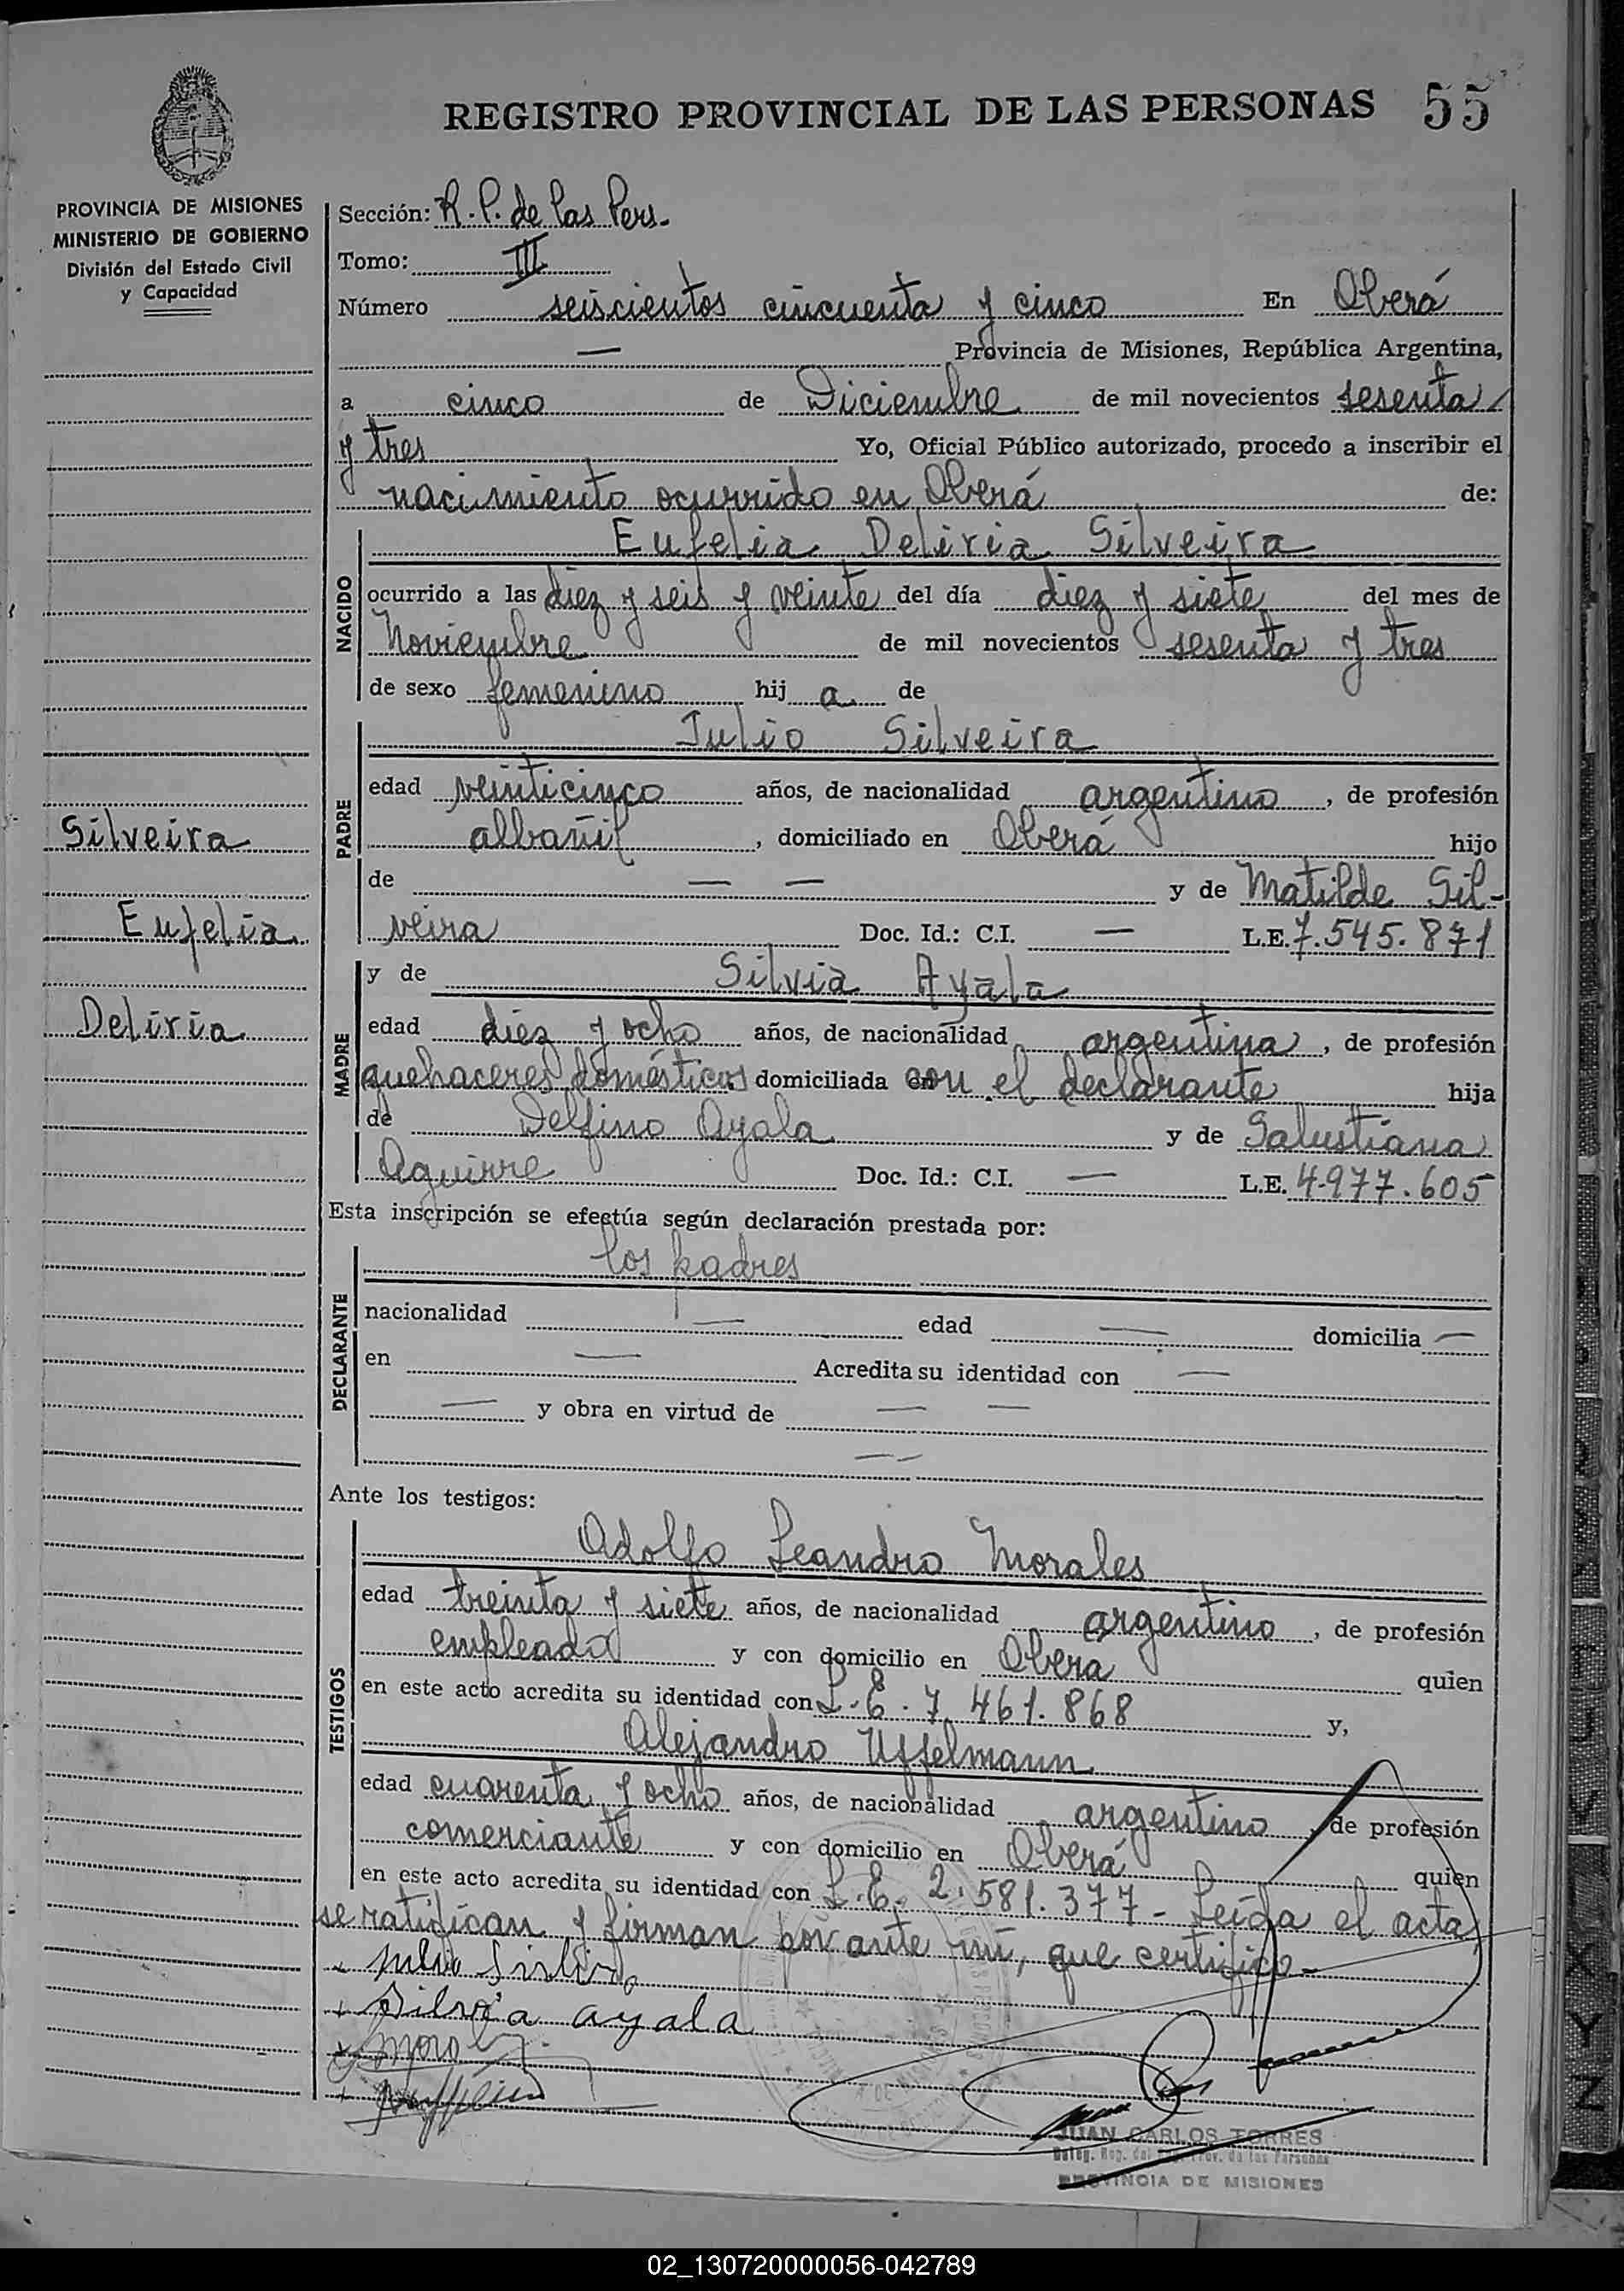 REGISTRO PROVINCIAL DE LAS PERSONAS 55
PROVINCIA DE MISIONES
MINISTERIO DE GOBIERNO
División del Estado Civil
y Capacidad
Silveira
Eufelia
Deliria
Sección: R. P. de las Pers.
Tomo: III
Número seiscientos cincuenta y cinco En Oberá
— Provincia de Misiones, República Argentina,
a cinco de Diciembre de mil novecientos sesenta
y tres Yo, Oficial Público autorizado, procedo a inscribir el
nacimiento ocurrido en Oberá de:
NACIDO
Eufelia Deliria Silveira
ocurrido a las diez y seis y veinte del día diez y siete del mes de
Noviembre de mil novecientos sesenta y tres
de sexo femenino hij a de
PADRE
Julio Silveira
edad veinticinco años, de nacionalidad argentino, de profesión
albañil, domiciliado en Oberá hijo
de — — y de Matilde Sil-
veira Doc. Id.: C.I. — L.E. 7.545.871
MADRE
y de Silvia Ayala
edad diez y ocho años, de nacionalidad argentina, de profesión
quehaceres domésticos domiciliada con el declarante hija
de Delfino Ayala y de Salustiana
Aguirre Doc. Id.: C.I. — L.E. 4.977.605
Esta inscripción se efectúa según declaración prestada por:
DECLARANTE
los padres
nacionalidad — edad — domicilia —
en — Acredita su identidad con —
— y obra en virtud de — —
— —
Ante los testigos:
TESTIGOS
Adolfo Leandro Morales
edad treinta y siete años, de nacionalidad argentino, de profesión
empleado y con domicilio en Oberá quien
en este acto acredita su identidad con L.E. 7.461.868 y,
Alejandro Uffelmann
edad cuarenta y ocho años, de nacionalidad argentino, de profesión
comerciante y con domicilio en Oberá quien
en este acto acredita su identidad con L.E. 2.581.377 - Leída el acta
se ratifican y firman por ante mí, que certifico -
Silvia ayala
JUAN CARLOS TORRES
PROVINCIA DE MISIONES
02_130720000056-042789